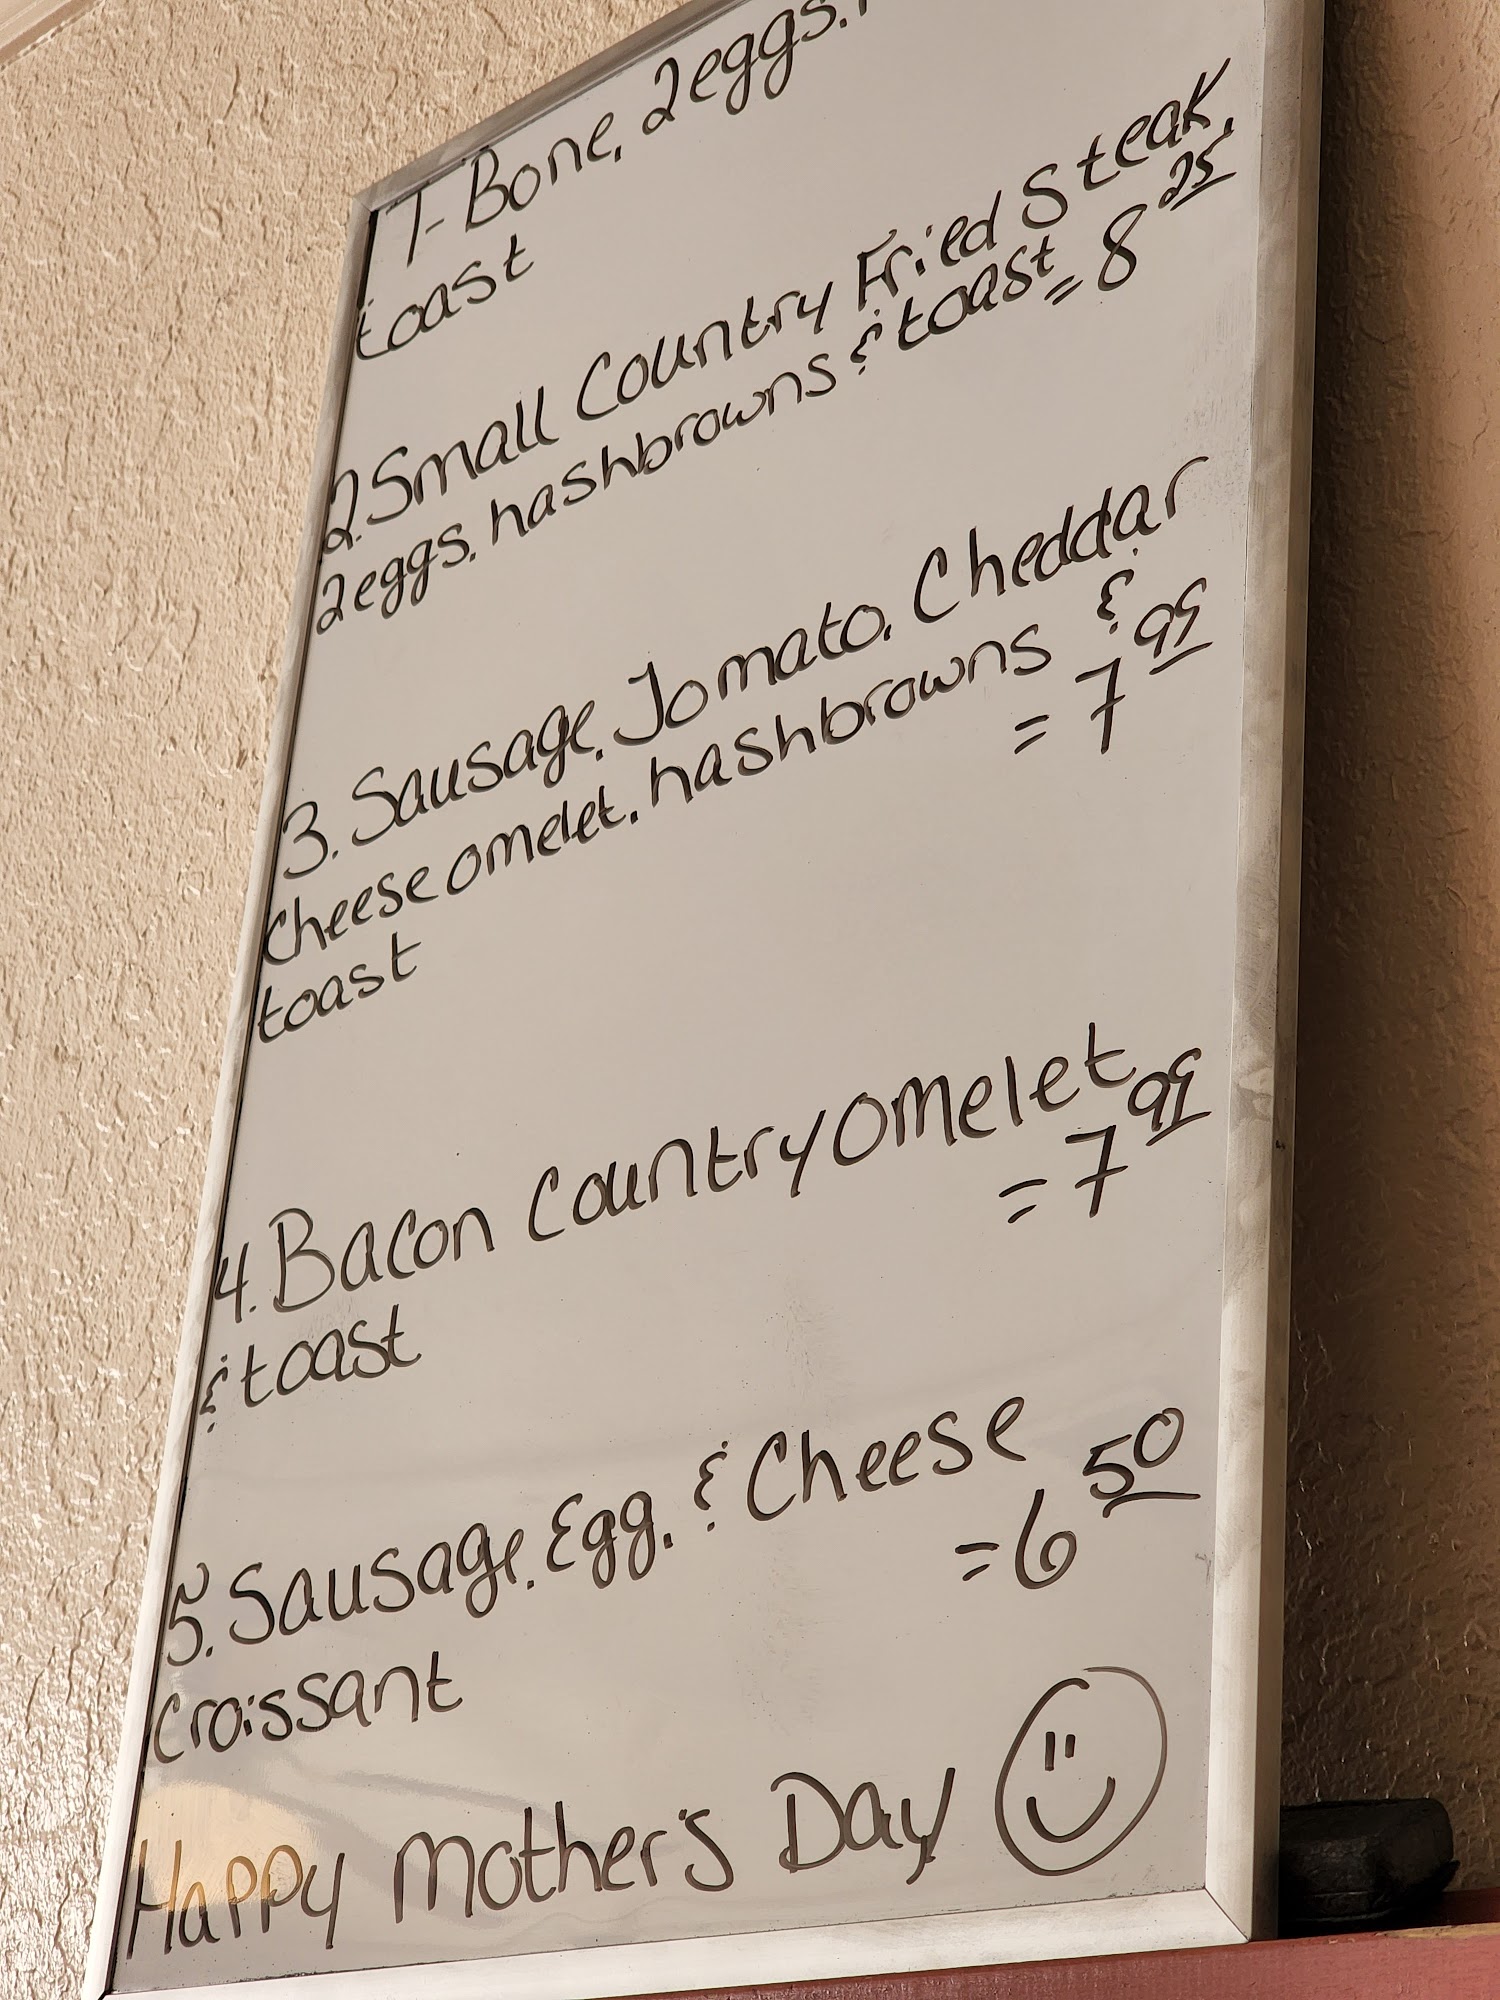 T-Bone, 2eggs,
toast
2. Small Country Fried Steak,
2eggs, hashbrowns & toast = 8 25
3. Sausage, Tomato, Cheddar
Cheese omelet, hashbrowns &
= 7 99
toast
4. Bacon Country Omelet
= 7 99
& toast
5. Sausage, Egg, & Cheese
= 6 50
Croissant
Happy Mother's Day